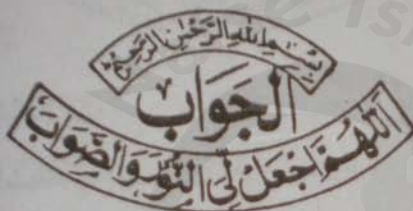 بِسْمِ اللهِ الرَّحْمٰنِ الرَّحِيْمِ
الجَوَابْ
اَللّٰهُمَّ اجْعَلْ لِّى النُّوْرَ وَالصَّوَابْ